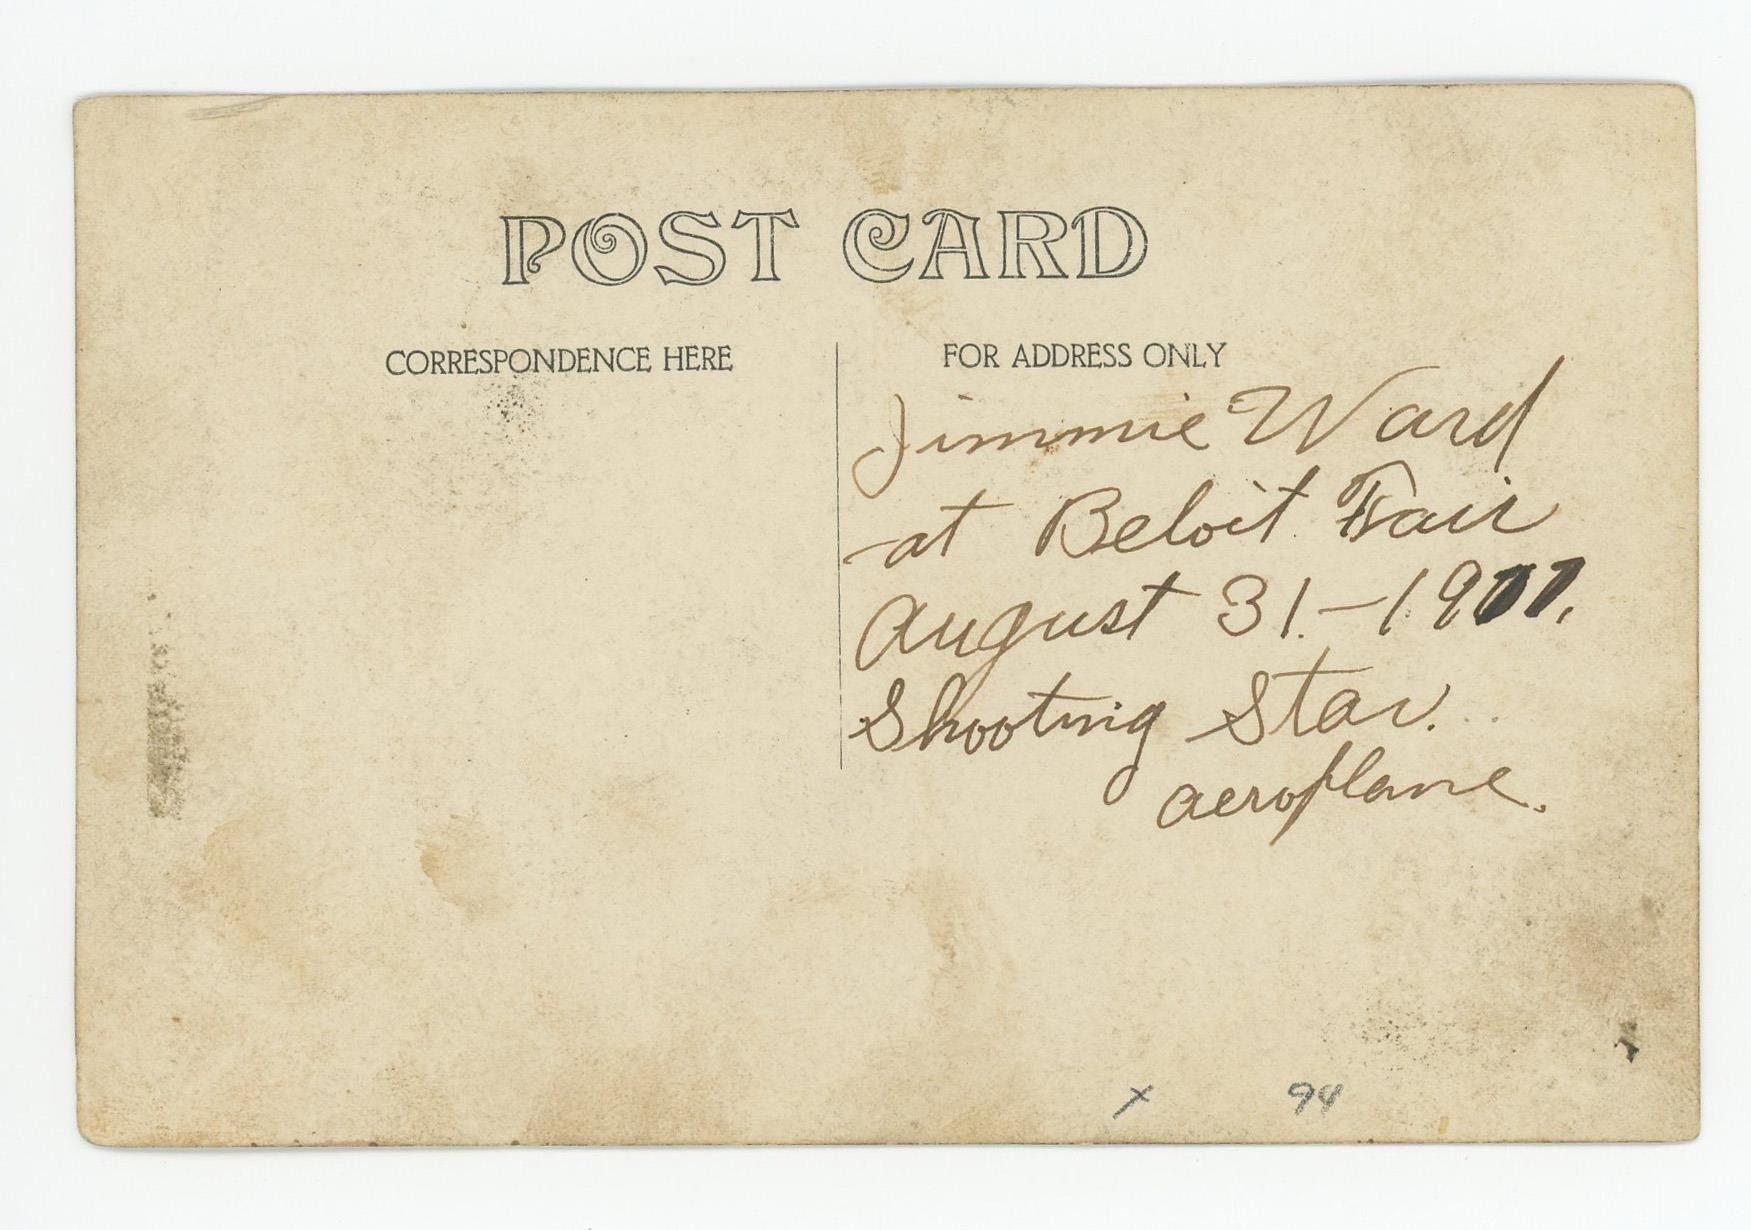 POST CARD
CORRESPONDENCE HERE
FOR ADDRESS ONLY
Jimmie Ward
at Beloit Fair
August 31.-1911.
Shooting Star.
aeroplane.
x 94